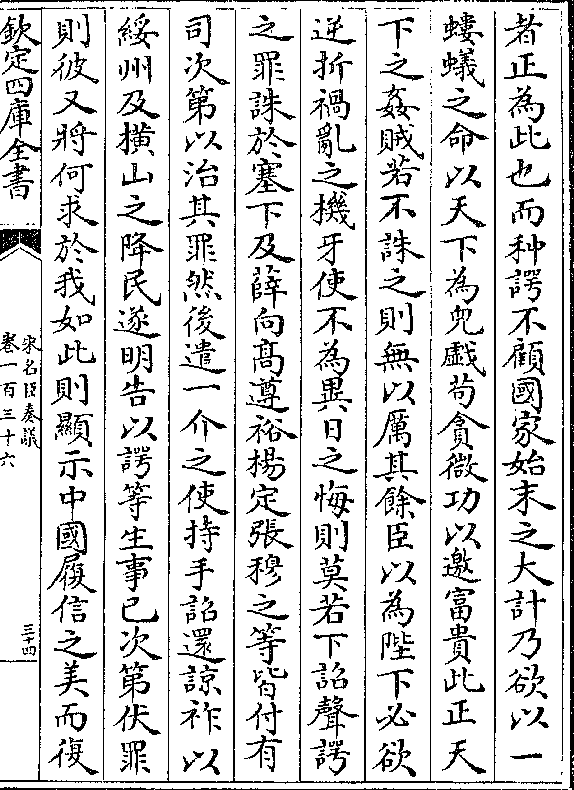 者正為此也而种諤不顧國家始末之大計乃欲以一
螻蟻之命以天下為兒戲苟貪微功以邀富貴此正天
下之姦賊若不誅之則無以厲其餘臣以為陛下必欲
逆折禍亂之機牙使不為異日之悔則莫若下詔聲諤
之罪誅於塞下及薛向高遵裕楊定張穆之等皆付有
司次第以治其罪然後遣一介之使持手詔還諒祚以
綏州及橫山之降民遂明告以諤等生事已次第伏罪
則彼又將何求於我如此則顯示中國履信之美而復
欽定四庫全書
宋名臣奏議
卷一百三十六
三十四